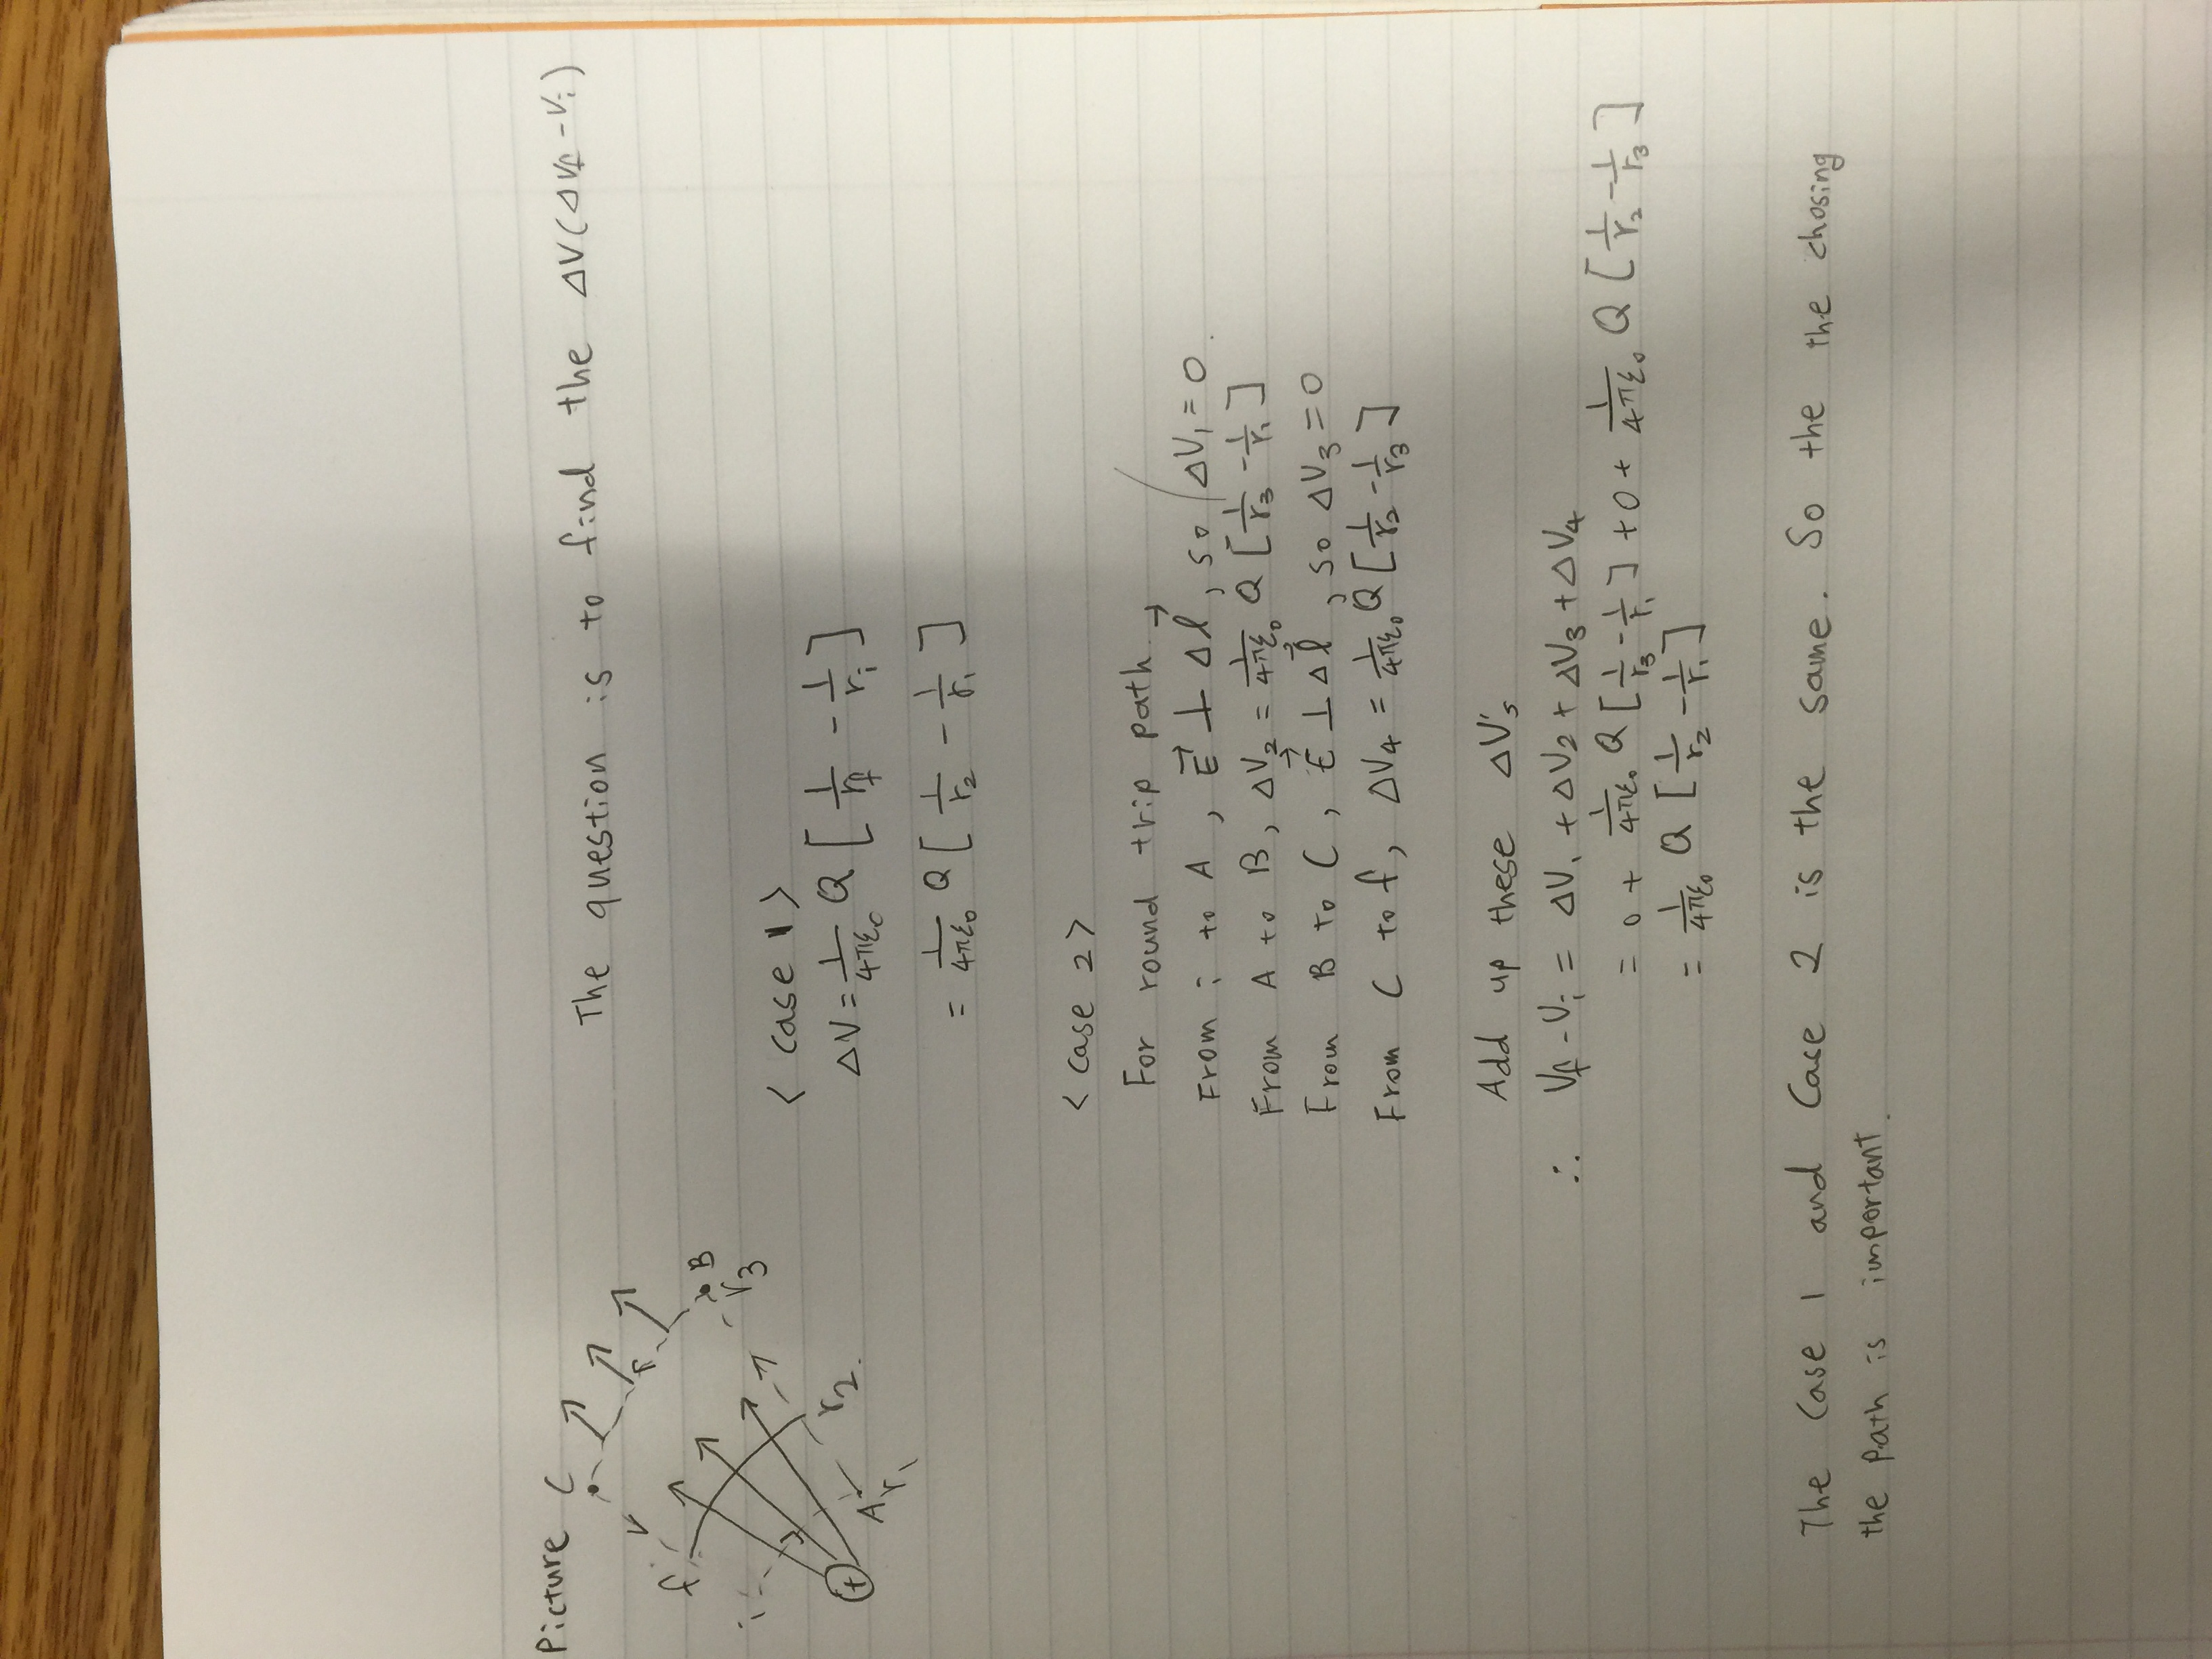 Picture
The question is to find the ΔV(ΔVf-Vi)
C
f
i
B
r3
r2
A
r1
+
<Case 1>
ΔV = 1/4πε0 Q [ 1/rf - 1/ri ]
= 1/4πε0 Q [ 1/r2 - 1/r1 ]
<Case 2>
For round trip path
From i to A, E⃗ ⊥ Δl⃗, so ΔV1 = 0.
From A to B, ΔV2 = 1/4πε0 Q [ 1/r3 - 1/r1 ]
From B to C, E⃗ ⊥ Δl⃗, so ΔV3 = 0
From C to f, ΔV4 = 1/4πε0 Q [ 1/r2 - 1/r3 ]
Add up these ΔV's
∴ Vf - Vi = ΔV1 + ΔV2 + ΔV3 + ΔV4
= 0 + 1/4πε0 Q [ 1/r3 - 1/r1 ] + 0 + 1/4πε0 Q [ 1/r2 - 1/r3 ]
= 1/4πε0 Q [ 1/r2 - 1/r1 ]
The Case 1 and Case 2 is the same. So the the chosing
the path is important.